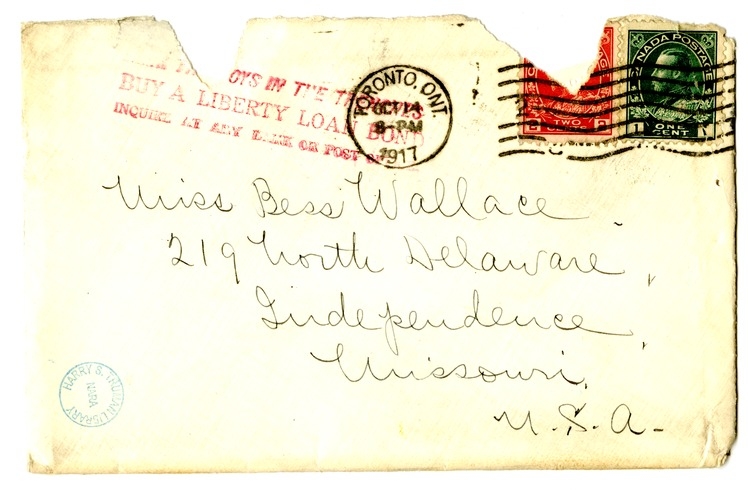 OYS IN THE
BUY A LIBERTY LOAN BOND
INQUIRE AT ANY BANK OR POST
TORONTO, ONT.
OCT 14
8-PM
1917
TWO
NADA POSTAGE
1 ONE 1
CENT
Miss Bess Wallace
219 North Delaware,
Independence,
Missouri,
U.S.A-
HARRY S. TRUMAN LIBRARY
NARA